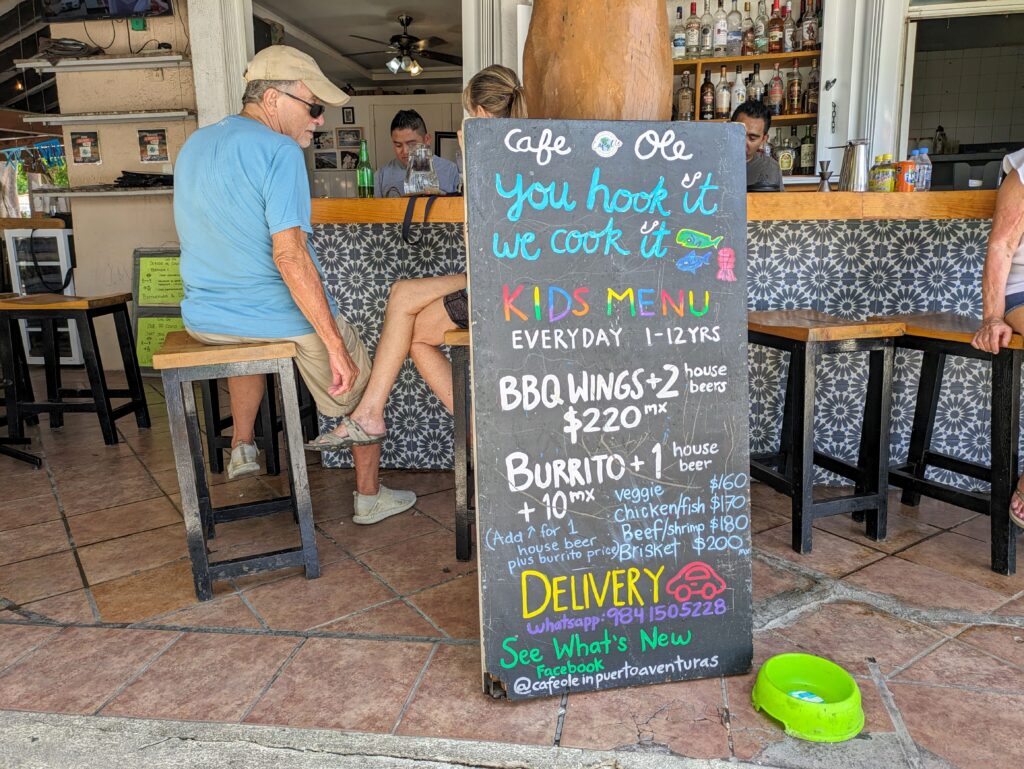 Cafe Ole
You hook it
we cook it
KIDS MENU
EVERYDAY 1-12YRS
BBQ WINGS+2 house beers
$220 mx
BURRITO+1 house beer
+10 mx
(Add ↑ for 1 house beer plus burrito price)
veggie $160
chicken/fish $170
Beef/shrimp $180
Brisket $200 mx
DELIVERY
whatsapp: 984 1505228
See What's New
Facebook
@cafeole in puertoaventuras